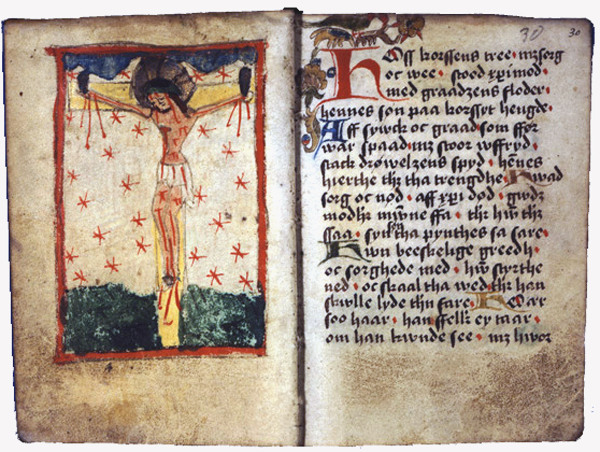 30 30
Hoss korssens tree · mz sorg
oc wee · stod xpi mod ·
med graadzens floder ·
hennes søn paa korssyt hengde ·
Aff sywck oc graad som ffor
war spaad · mz stoor wffryd ·
stack drøwelzens spyd · henes
hierthe thz tha trengdhe · Hwad
sorg oc nød · aff xpi død · gwdz
modhr mwne ffa · thz hw̄ thr
saa · tha pynthes sa sare ·
Hwn beeskelige greedh ·
oc sorghede med · hw̄ styrthe
ned · oc skaal tha wed thz han
skwlle lyde thn fare ·
soo haar · han feller ey taar ·
om han kwnde see · mz hwor